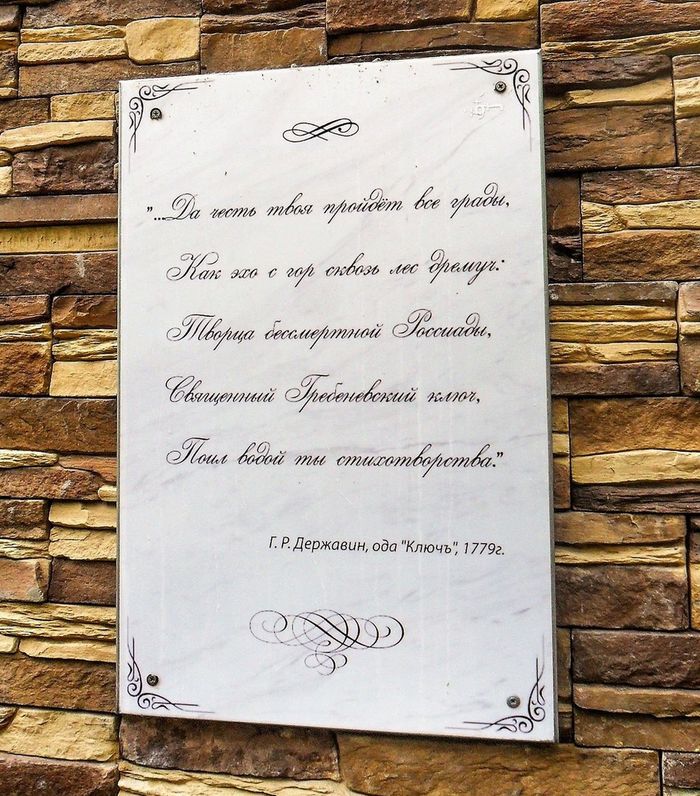 "...Да честь твоя пройдёт все грады,
Как эхо с гор сквозь лес дремуч:
Творца бессмертной Россиады,
Священный Гребеневский ключ,
Поил водой ты стихотворства."
Г. Р. Державин, ода "Ключъ", 1779г.